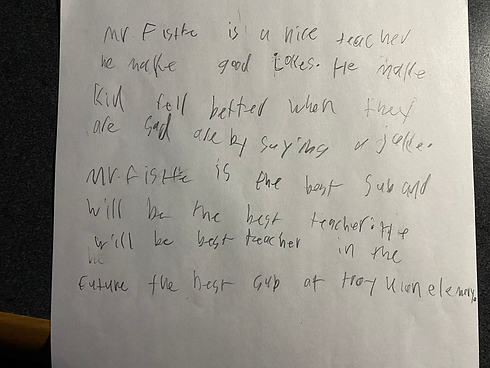 Mr. Fistte is a nice teacher
he make good Jokes. He make
Kid fell better when they
are sad are by saying a joke.
Mr. Fistte is the best sub and
will be the best teacher. He
will be best teacher in the
future the best sub at troy